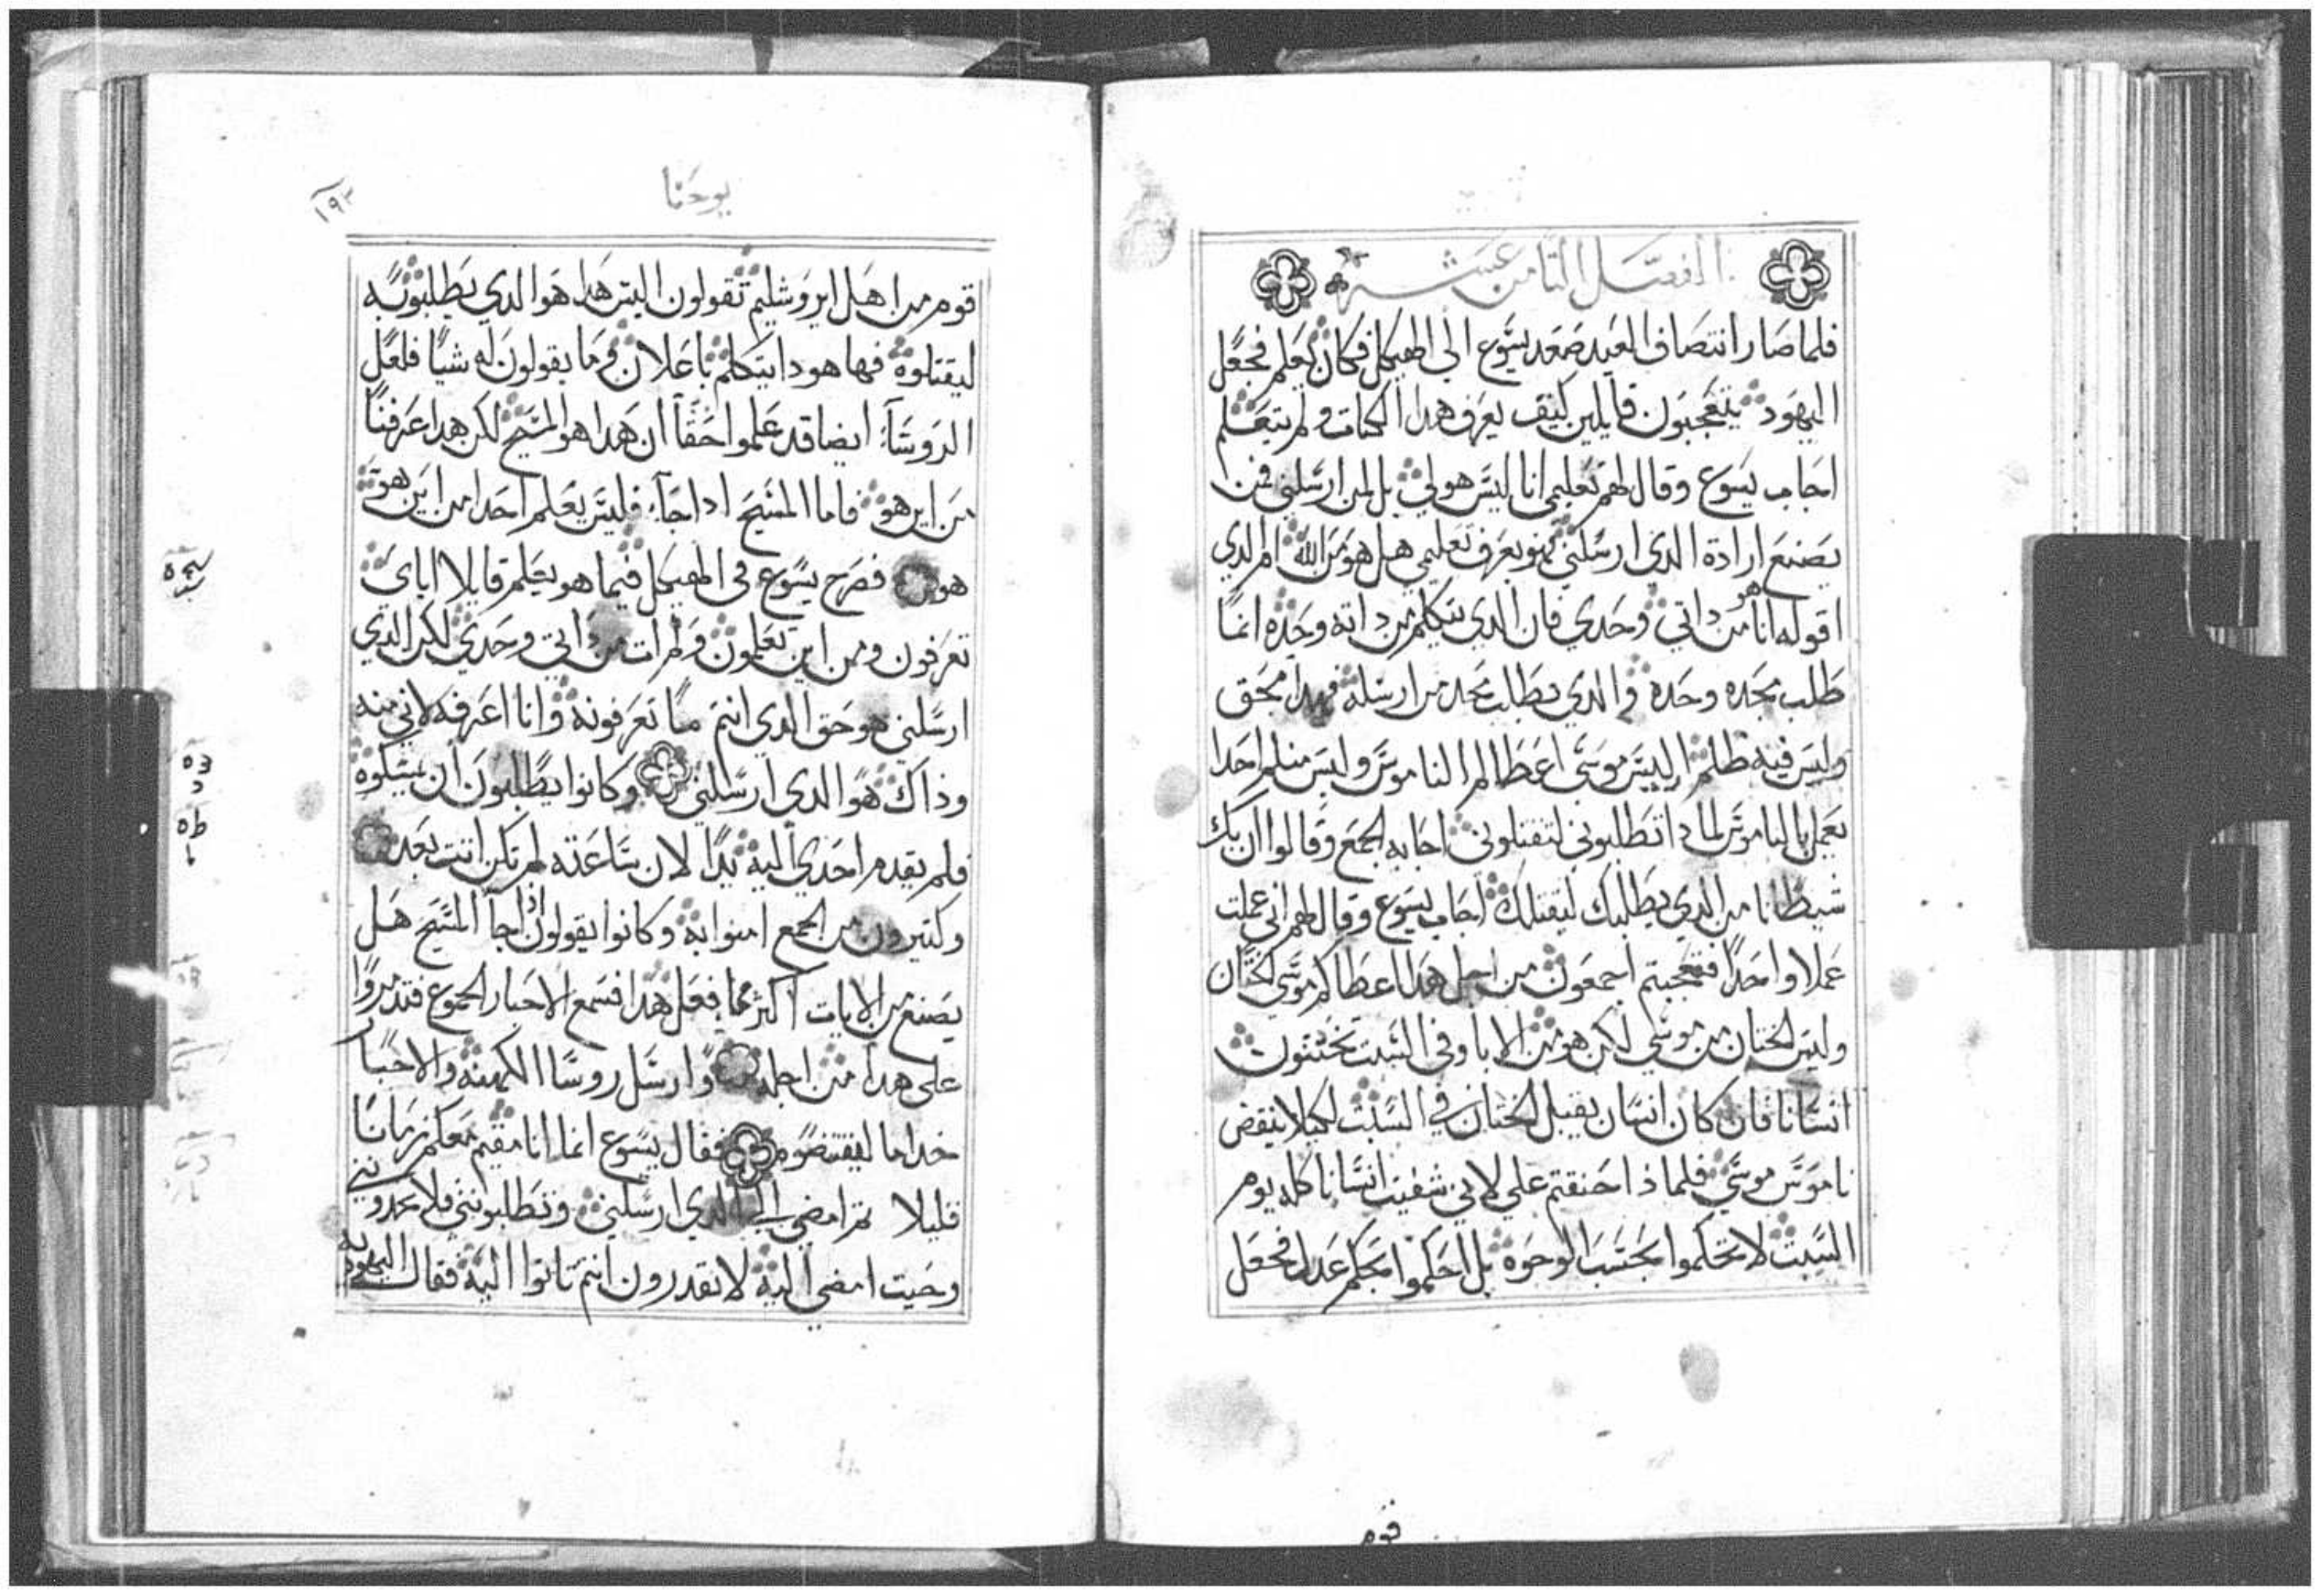 الفصل الثامن عشر
فلما صار انتصاف العيد صعد يسوع الى الهيكل فكان يعلم فجعل
اليهود يتعجبون قايلين كيف يعرف هدا الكتاب ولم يتعلم
اجاب يسوع وقال لهم تعليمى انا ليس هو لي بل لمن ارسلني فمن
يصنع ارادة الدى ارسلني فهو يعرف تعليمي هل هو من الله ام الدي
اقوله انا هو من داتي وحدي فان الدي يتكلم من داته وحده انما
طلب مجده وحده والدي يطلب مجد من ارسله فهدا محق
وليس فيه ظلم اليس موسى اعطاكم الناموس وليس منكم احدا
يعمل بالناموس لما دا تطلبوني لتقتلوني اجابه الجمع وقالوا ان بك
شيطانا من الدي يطلبك ليقتلك اجاب يسوع وقال لهم اني عملت
عملا واحدا فتعجبتم اجمعون من اجل هدا اعطاكم موسي الختان
وليس الختان من موسي لكن هو من الابا وفي السبت تختنون
انسانا فان كان انسان يقبل الختان في السبت لكيلا ينقض
ناموس موسي فلما ذا حنقتم علي لاني شفيت انسانا كله يوم
السبت لا تحكموا بحسب الوجوه بل احكموا بحكم عدل فجعل
قوم
يوحنا
١٩٢
قوم من اهل ايروشليم تقولون اليس هدا هو الدي يطلبونه
ليقتلوه فها هودا يتكلم باعلان وما يقولون له شيا فلعل
الروسآء ايضا قد علموا حقا ان هدا هو المسيح لكن هدا عرفنا
من اين هو فاما المسيح ادا جآء فليس يعلم احد من اين هو
هو فصرح يسوع فى الهيكل فيما هو يعلم قايلا اياى
تعرفون ومن اين تعلمون ولم ات من داتي وحدي لكن الدي
ارسلني هو حق الدي انتم ما تعرفونه وانا اعرفه لاني منه
وذاك هو الدي ارسلني وكانوا يطلبون ان يمسكوه
فلم يقدم احد ي اليه يدا لان ساعته لم تكن اتت بعد
وكتيرون من الجمع امنوا به وكانوا يقولون اذا جآ المسيح هل
يصنع من الايات اكثر مما فعل هدا فسمع الاحبار الجموع فتدمروا
على هدا من اجله وارسل روسا الكهنه والاحبار
خداما ليقبضوه فقال يسوع انما انا مقيم معكم زمانا
قليلا تم امضي الى الدي ارسلني وتطلبونني فلا تجدونني
وحيت امضي اليه لا تقدرون انتم تاتوا اليه فقال اليهود